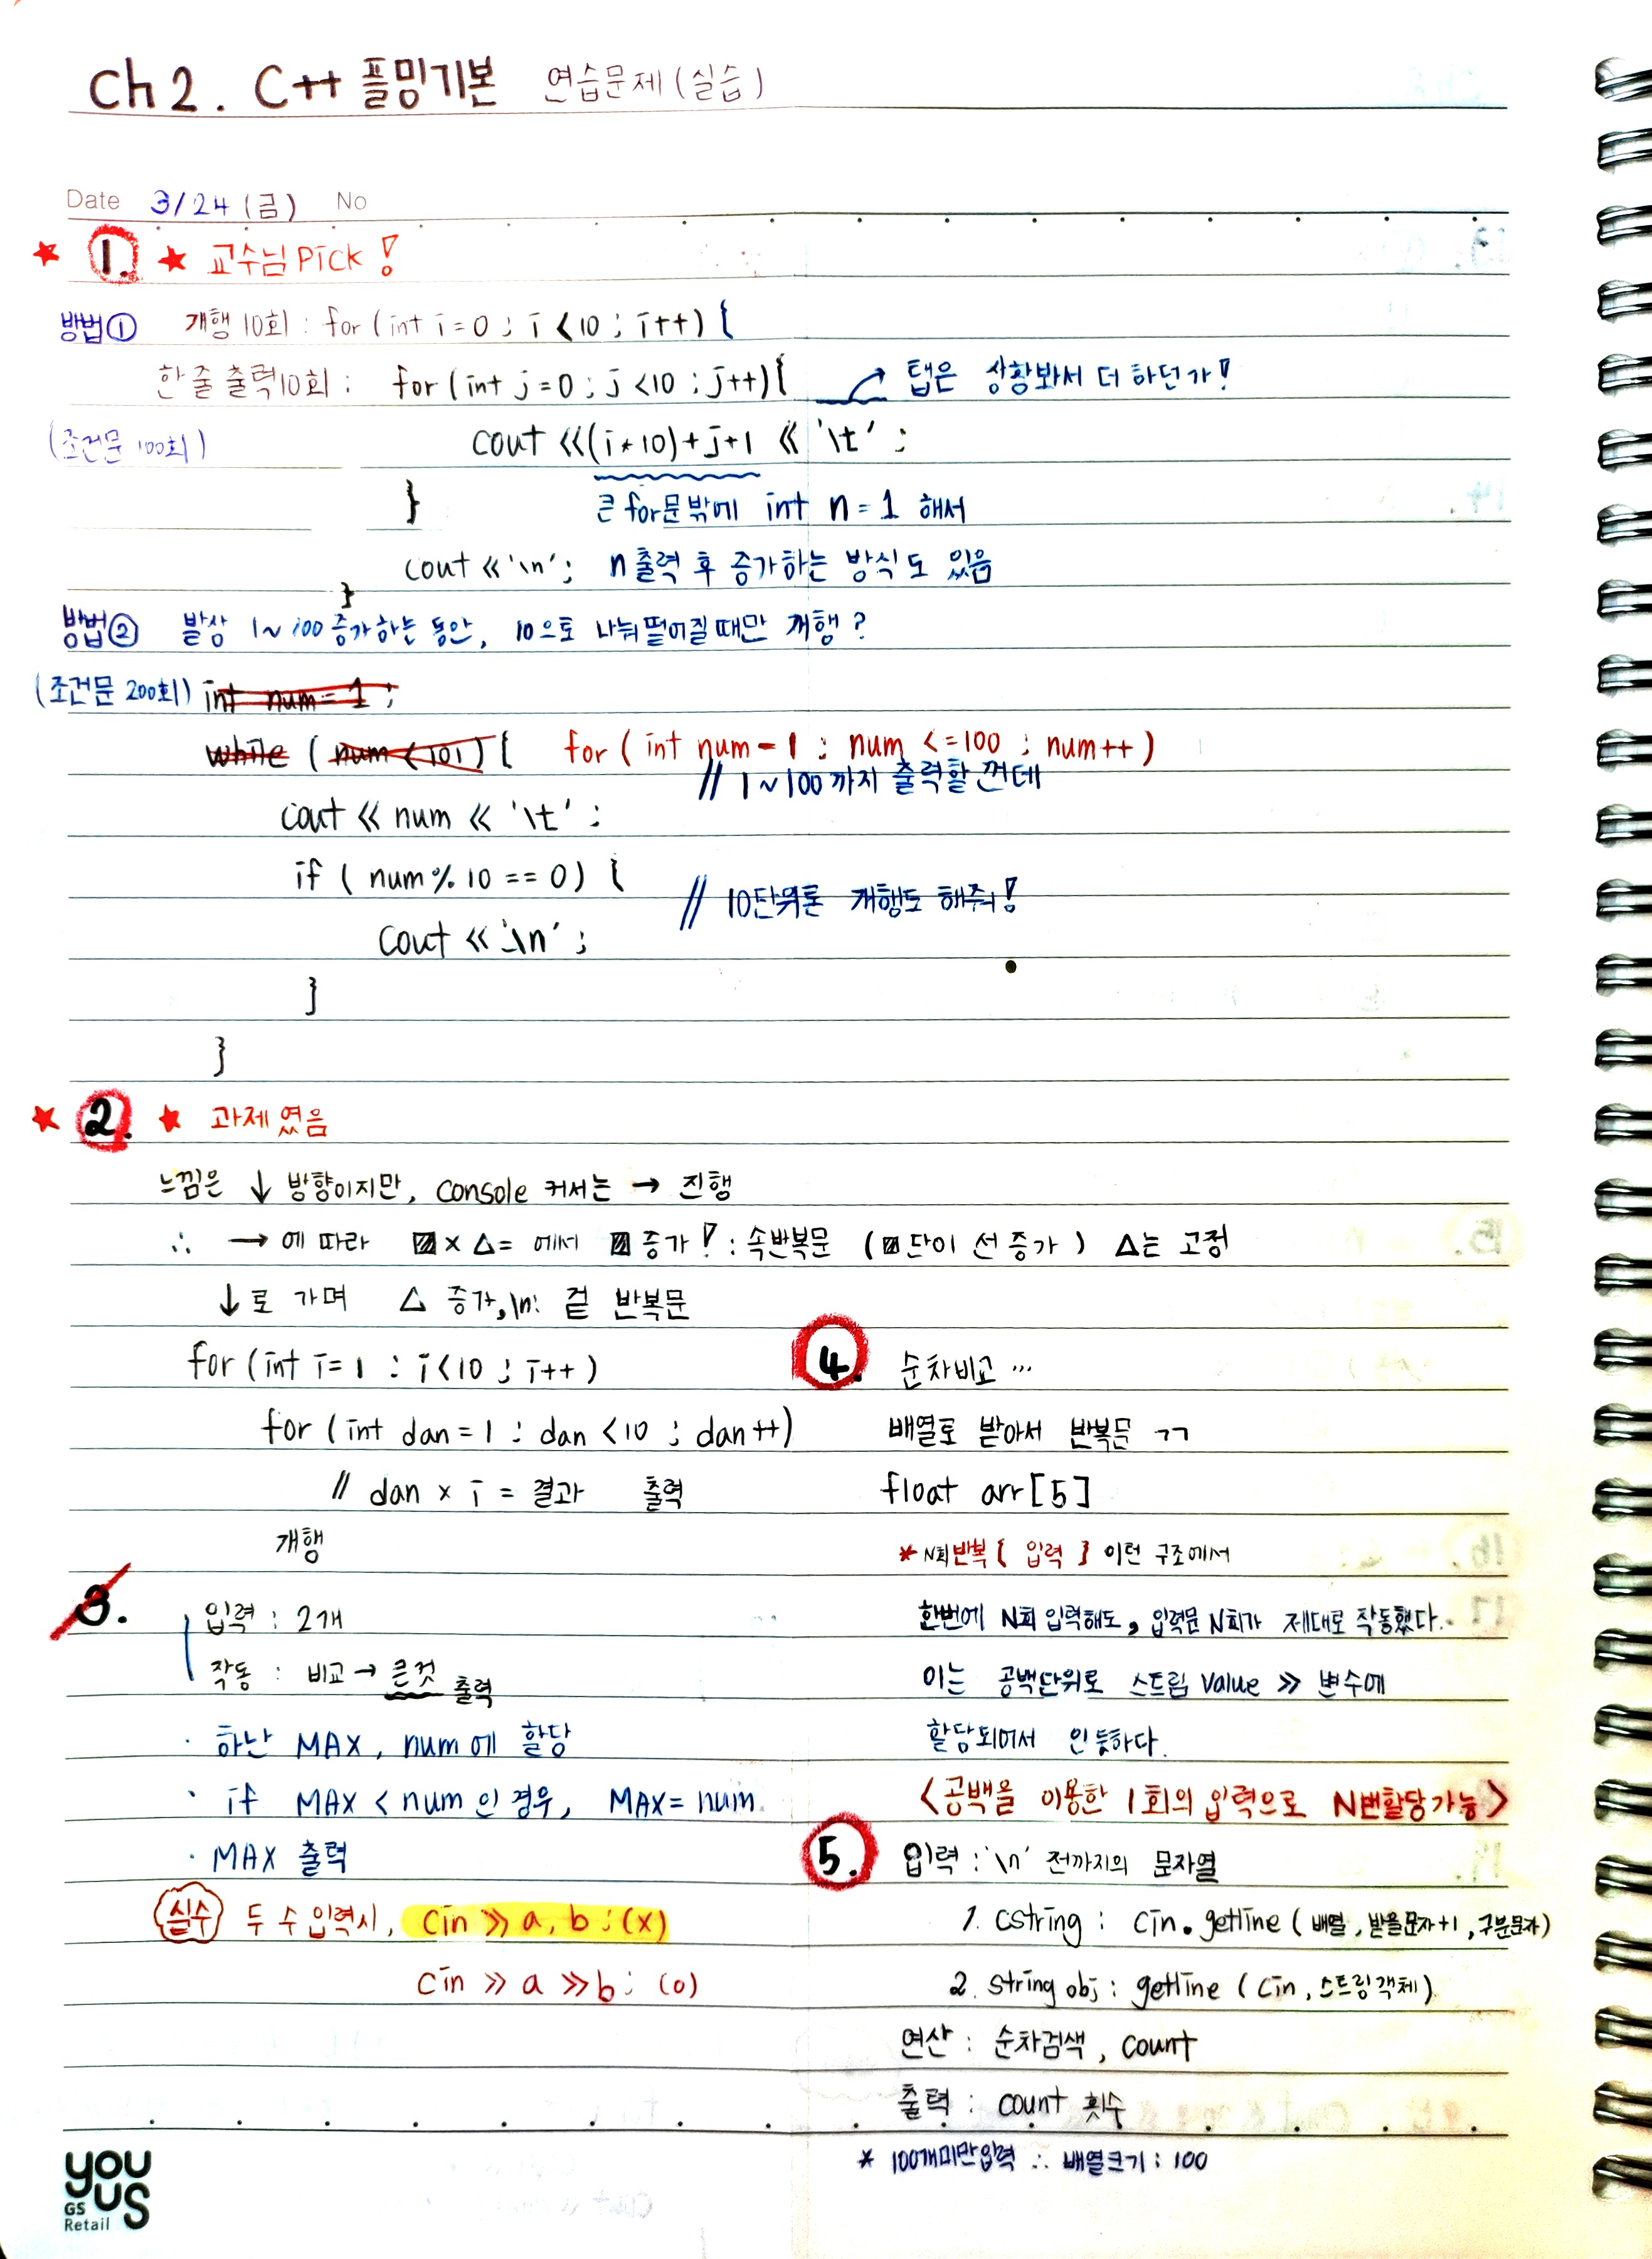 Ch 2. C++ 플밍기본 연습문제 (실습)
Date 3/24 (금) No
★ 1. ★ 교수님 Pick !
방법① 개행 10회 : for (int i=0 ; i<10 ; i++) {
한 줄 출력 10회 : for (int j=0 ; j<10 ; j++) { 탭은 상황봐서 더 하던가!
(조건문 100회) cout <<(i*10)+j+1 << '\t' ;
} 큰 for문 밖에 int n=1 해서
cout << '\n' ; n 출력 후 증가하는 방식도 있음
}
방법② 발상 1~100 증가하는 동안, 10으로 나눠떨어질때만 개행?
(조건문 200회) int num=1 ;
while (num<101) { for (int num=1 ; num <=100 ; num++)
// 1~100까지 출력할껀데
cout << num << '\t' ;
if ( num % 10 == 0) {
// 10단위론 개행도 해줘!
cout << '\n' ;
}
}
★ 2. ★ 과제였음
느낌은 ↓ 방향이지만, console 커서는 → 진행
∴ → 에 따라 ▨ × △ = 에서 ▨ 증가! : 속반복문 (▨단이 선 증가) △는 고정
↓로 가며 △ 증가, \n : 겉 반복문
for (int i=1 ; i<10 ; i++)
for (int dan=1 ; dan<10 ; dan++)
// dan × i = 결과 출력
개행
3. 입력 : 2개
작동 : 비교 → 큰것 출력
· 하난 MAX, num에 할당
· if MAX < num 인 경우, MAX = num.
· MAX 출력
실수 두 수 입력시, cin >> a, b ; (x)
cin >> a >> b ; (o)
4. 순차비교 …
배열로 받아서 반복문 ㄱㄱ
float arr[5]
* N회 반복 { 입력 } 이런 구조에서
한번에 N회 입력해도, 입력문 N회가 제대로 작동했다.
이는 공백단위로 스트림 value >> 변수에
할당되어서 인 듯하다.
<공백을 이용한 1회의 입력으로 N번할당가능>
5. 입력 : '\n' 전까지의 문자열
1. cstring : cin.getline (배열, 받을문자+1, 구분문자)
2. string obj : getline (cin, 스트링객체)
연산 : 순차검색, count
출력 : count 횟수
* 100개미만입력 ∴ 배열크기 : 100
YOU
US
GS
Retail